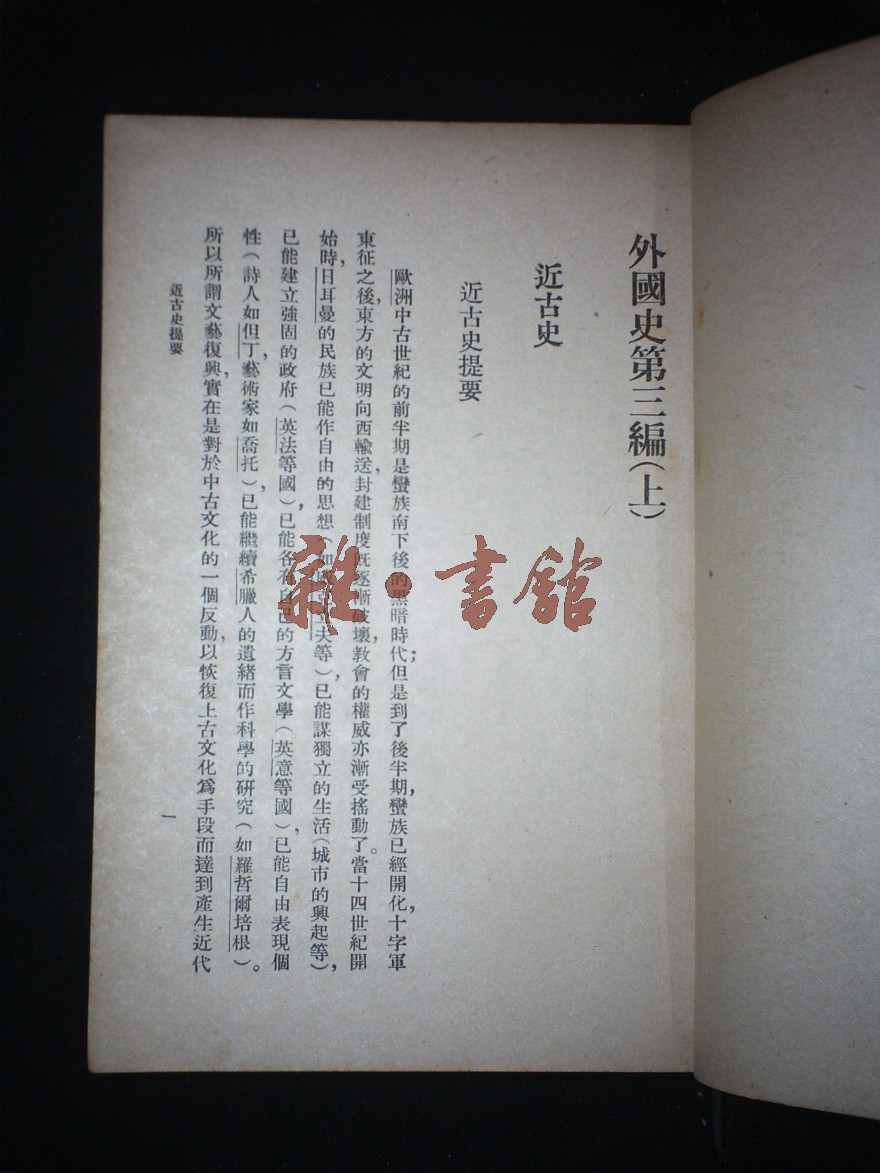 外國史第三編（上）
近古史
近古史提要
歐洲中古世紀的前半期是蠻族南下後的黑暗時代；但是到了後半期，蠻族已經開化，十字軍
東征之後，東方的文明向西輸送，封建制度既逐漸破壞，教會的權威亦漸受搖動了。當十四世紀開
始時，日耳曼的民族已能作自由的思想（如夫等），已能謀獨立的生活（城市的興起等），
已能建立強固的政府（英法等國），已能各有自己的方言文學（英意等國），已能自由表現個
性（詩人如但丁，藝術家如喬托），已能繼續希臘人的遺緒而作科學的研究（如羅哲爾培根）。
所以所謂文藝復興，實在是對於中古文化的一個反動，以恢復上古文化爲手段而達到產生近代
近古史提要
一
雜·書館